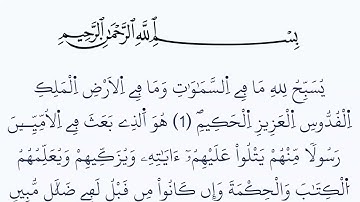 بِسْمِ اللَّهِ الرَّحْمَٰنِ الرَّحِيمِ
يُسَبِّحُ لِلهِ مَا فِي اِ۬لسَّمَٰوَٰتِ وَمَا فِي اِ۬لَارْضِ اِ۬لْمَلِكِ
اِ۬لْقُدُّوسِ اِ۬لْعَزِيزِ اِ۬لْحَكِيمِۖ (1) هُوَ اَ۬لذِے بَعَثَ فِي اِ۬لُامِّيِّـۧنَ
رَسُولاٗ مِّنْهُمْ يَتْلُواْ عَلَيْهِمُۥٓ ءَايَٰتِهِۦ وَيُزَكِّيهِمْ وَيُعَلِّمُهُمُ
اُ۬لْكِتَٰبَ وَالْحِكْمَةَ وَإِن كَانُواْ مِن قَبْلُ لَفِے ضَلَٰلٖ مُّبِينٖ